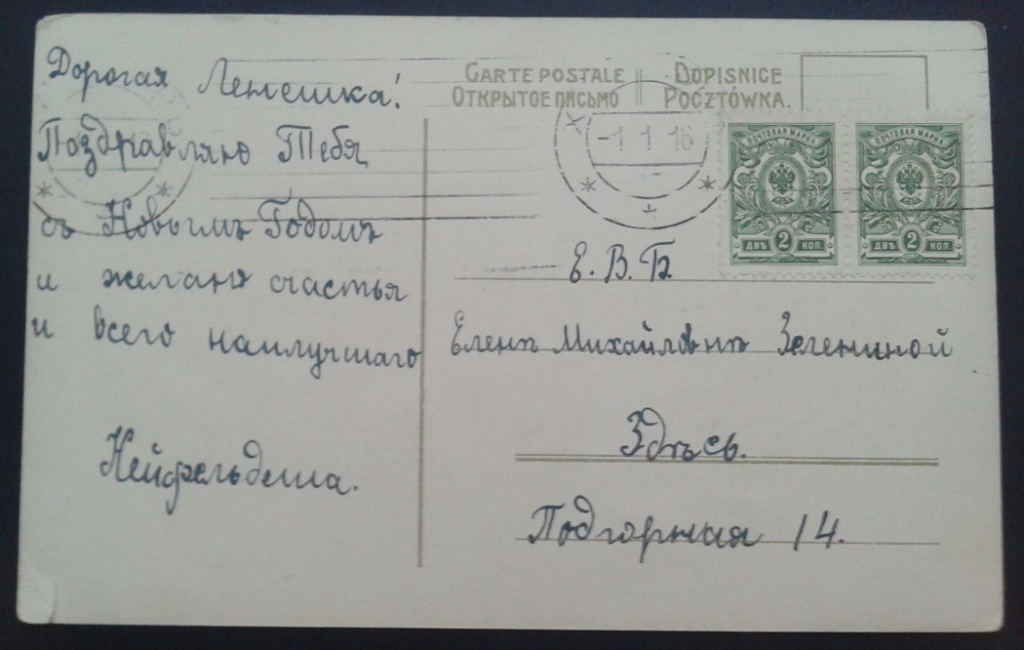 Дорогая Ленешка!
Поздравляю Тебя
съ Новымъ Годомъ
и желаю счастья
и всего наилучшаго
Нейфельдеша.
CARTE POSTALE
ОТКРЫТОЕ ПИСЬМО
DOPISNICE
POCZTÓWKA.
-1 1 16
ПОЧТОВАЯ МАРКА
ДВѢ 2 КОП.
ПОЧТОВАЯ МАРКА
ДВѢ 2 КОП.
Е. В. Б.
Еленѣ Михайловнѣ Зелениной
Здѣсь.
Подгорная 14.